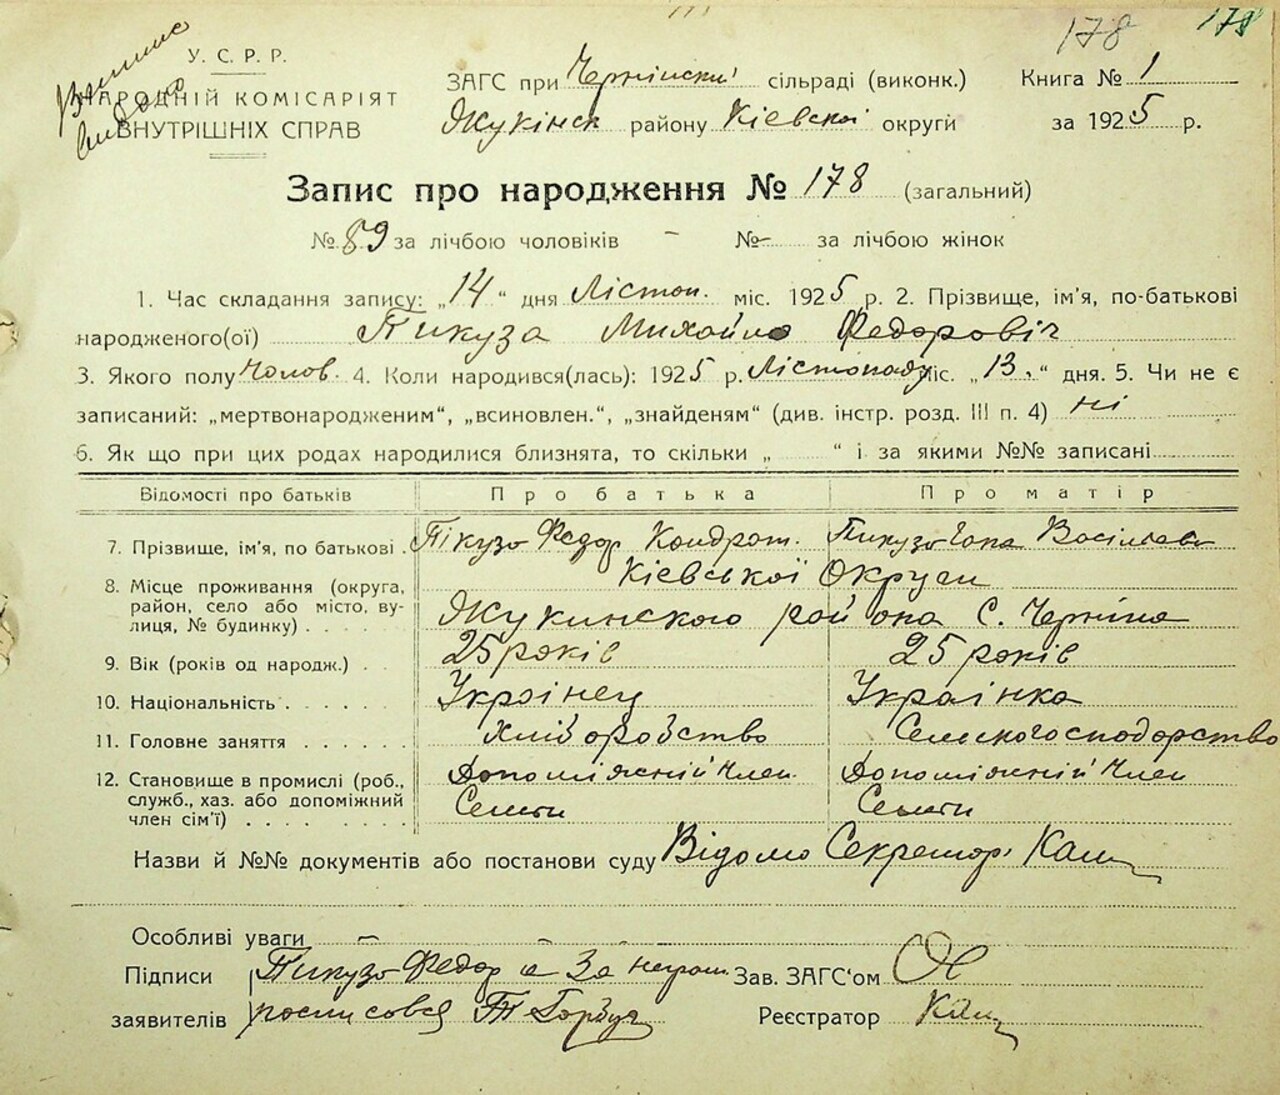 178 178
Випис
видано
У. С. Р. Р.
НАРОДНІЙ КОМІСАРІЯТ
ВНУТРІШНІХ СПРАВ
ЗАГС при Чернінскі сільраді (виконк.) Книга № 1
Жукінск району Кіевскоі округи за 1925 р.
Запис про народження № 178 (загальний)
№ 89 за лічбою чоловіків – №- за лічбою жінок
1. Час складання запису: „14“ дня Лістоп. міс. 1925 р. 2. Прізвище, ім'я, по-батькові
народженого(ої) Пикуза Михайло Федоровіч
3. Якого полу Чолов. 4. Коли народився(лась): 1925 р. Лістопаду міс. „13.“ дня. 5. Чи не є
записаний: „мертвонародженим“, „всиновлен.“, „знайденям“ (див. інстр. розд. III п. 4) ні
6. Як що при цих родах народилися близнята, то скільки „ “ і за якими №№ записані
Відомості про батьків Про батька Про матір
7. Прізвище, ім'я, по батькові . Пікузо Федор Кондрат. Пикузо Гапа Васільевн
8. Місце проживання (округа, район, село або місто, вулиця, № будинку) . . . . Кіевськоі Округи
Жукинского района С. Черніна
9. Вік (років од народж.) . . 25 років 25 років
10. Національність . . . . . . Украінец Украінка
11. Головне заняття . . . . . . Хліборобство Сельскогосподорство
12. Становище в промислі (роб., служб., хаз. або допоміжний член сім'ї) . . . . . . . . Допоміжній Член Семти Допоміжній Член Семти
Назви й №№ документів або постанови суду Відомо Секретар.
Особливі уваги –
Підписи Пикузо Федор а За неграм. Зав. ЗАГС'ом
заявителів росписовся Горбуч Реєстратор